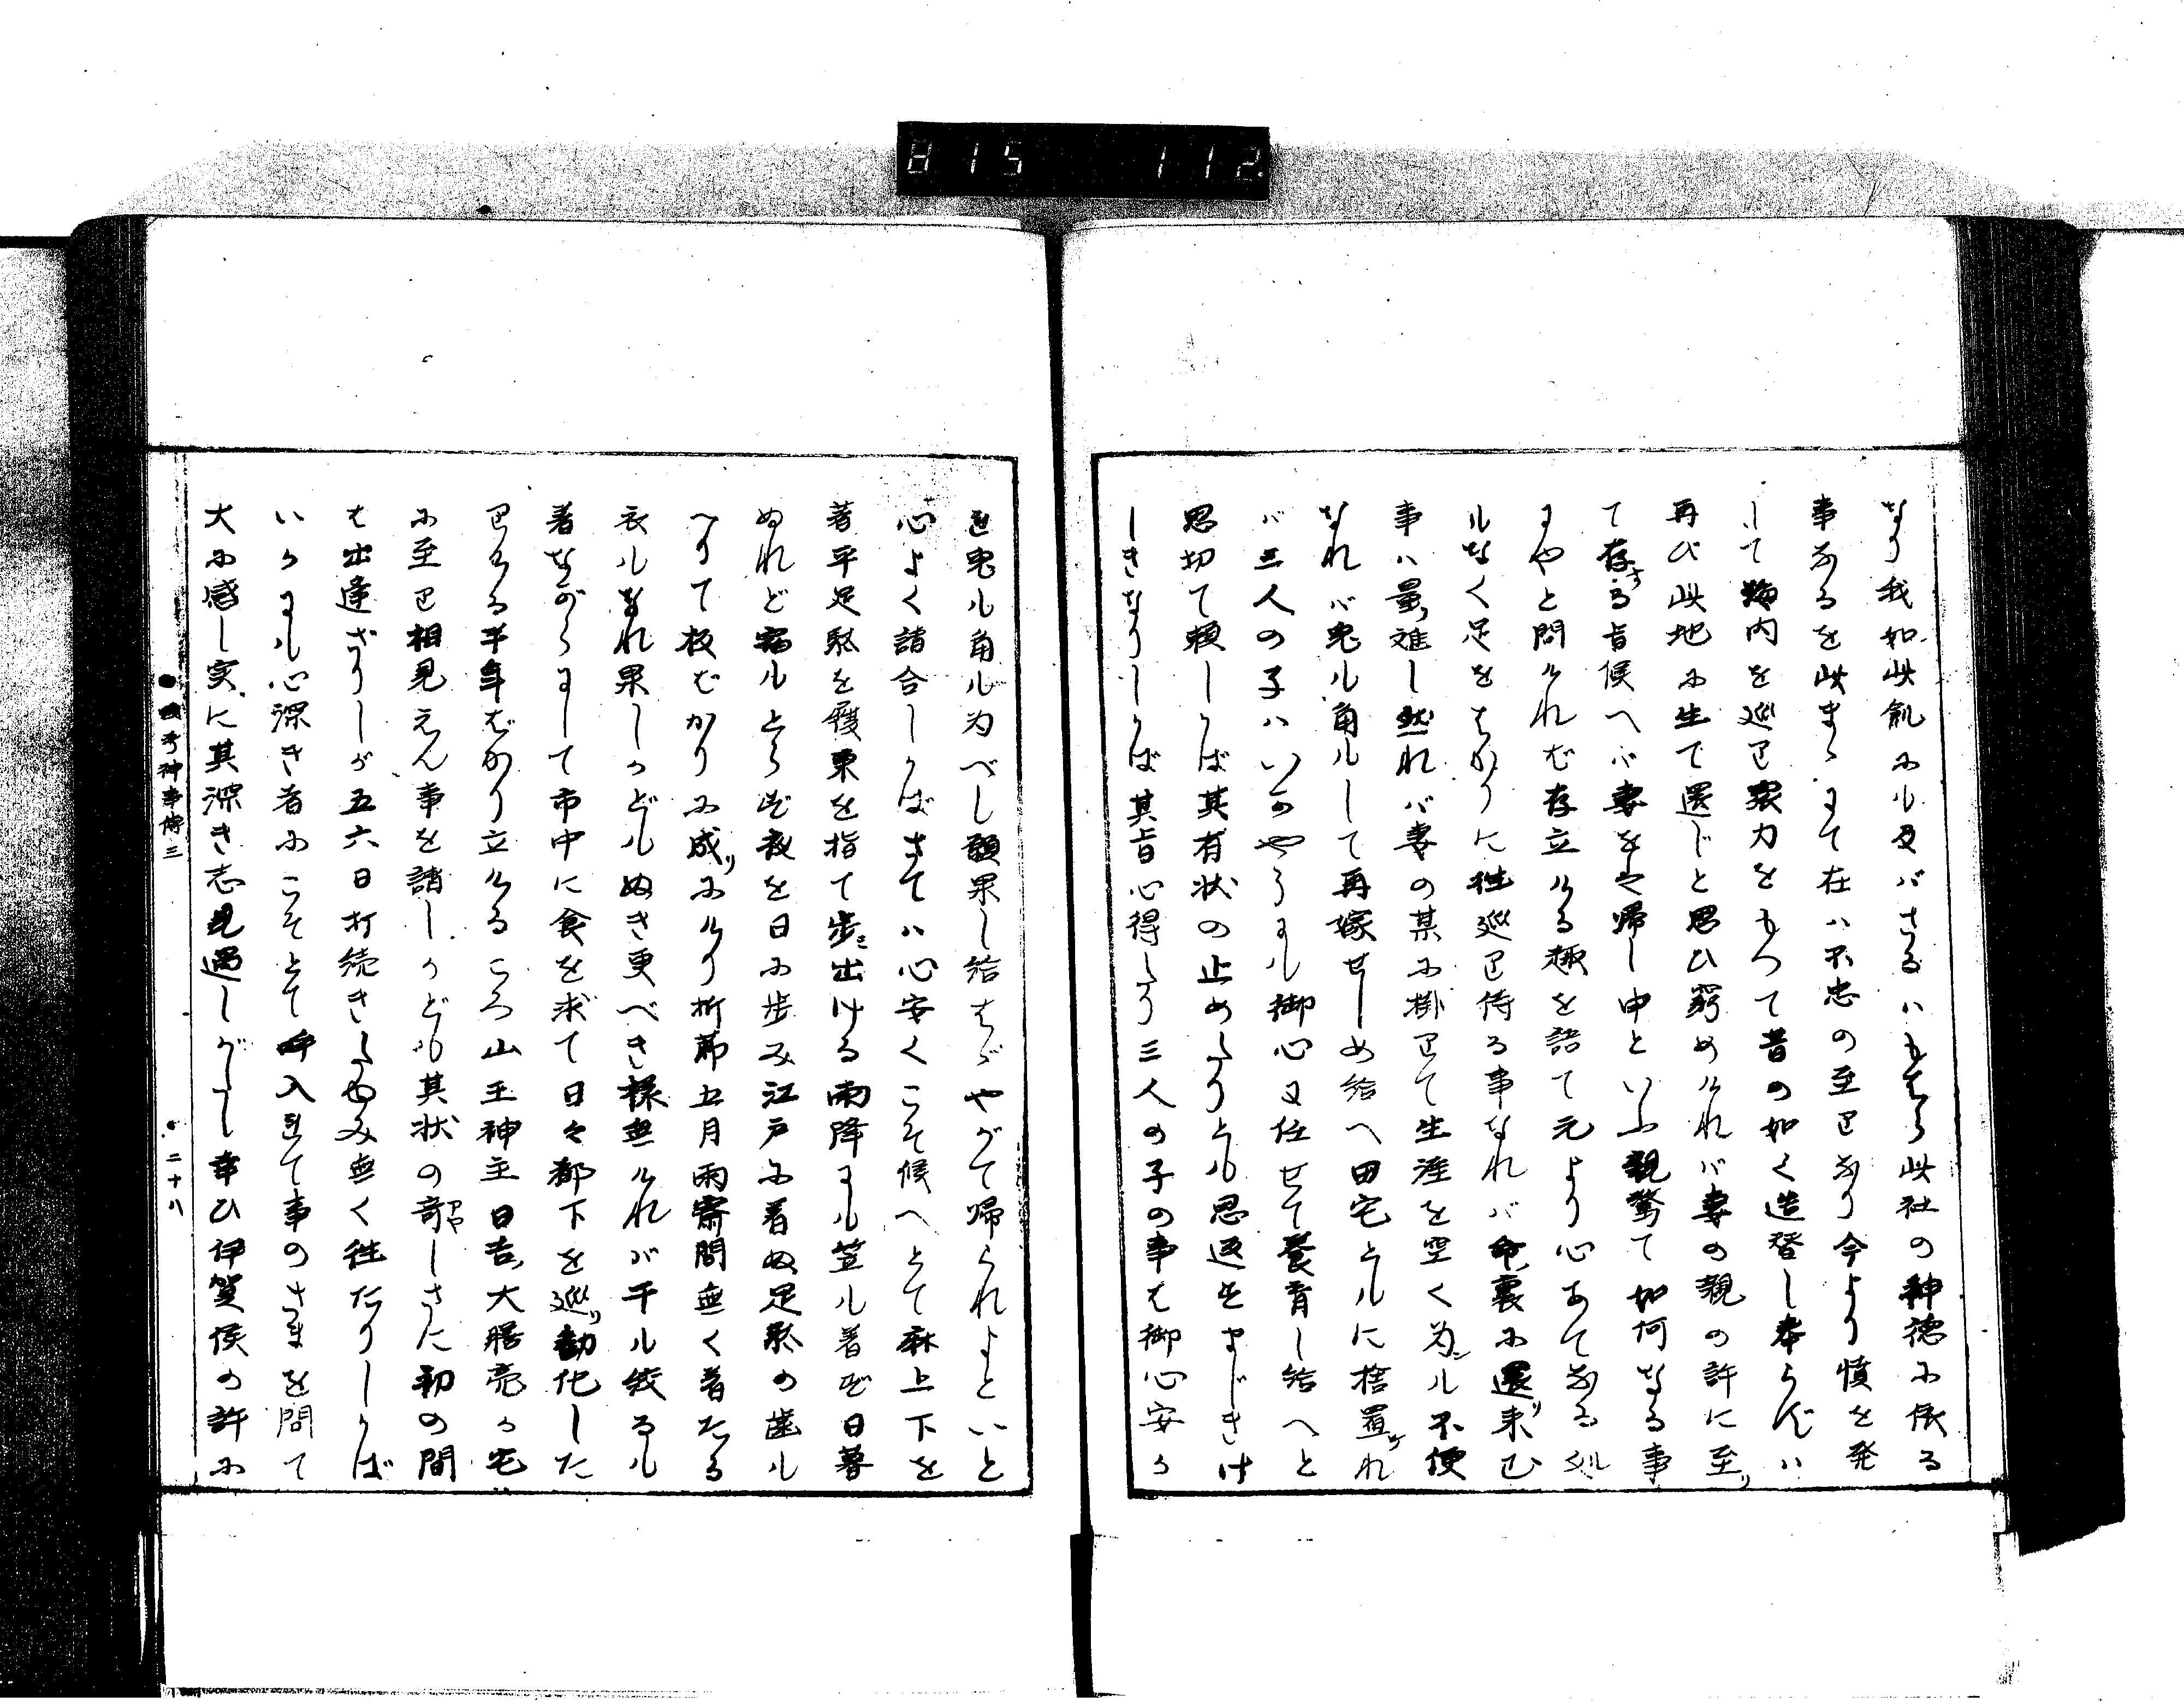 815 112
なり我如此飢にも及バざるハもはら此社の神徳に依る
事なるを此まゝにて在ハ不忠の至りなり今より憤を発
して海内を巡り衆力をもつて昔の如く造替し奉らずハ
再び此地に生て還じと思ひ窮めけれバ妻の親の許に至り
て存する旨候へバ妻をや帰し申といふ親驚て如何なる事
にやと問けれど存立ける趣を語て元より心あてなる処
もなく足をはかりに往巡り侍る事なれバ命裏に還り来む
事ハ量り難し然れバ妻の某に掛りて生涯を空く為ンも不便
なれバ兎も角もして再嫁せしめ給へ田宅ともに捨置けれ
バ三人の子ハいかやうにも御心に任せて養育し給へと
思切て頼しかば其有状の止めたりとも思返すまじきけ
しきなりしかば其旨心得たり三人の子の事は御心安か
れ兎も角も為べし願果し給はゞやがて帰られよといと
心よく諾合しかばさてハ心安くこそ候へとて麻上下を
著平足駄を履東を指て歩き出ける雨降にも笠も着ず日暮
ぬれど宿もとらず夜を日に歩み江戸に着ぬ足駄の歯も
へりて板ばかりに成りにけり折節五月雨霽間無く着たる
衣もなれ果しかどもぬき更べき様無けれバ干も絞るも
着ながらにして市中に食を求て日々都下を巡り勧化した
りける半年ばかり立けるころ山王神主日吉大膳亮か宅
に至り相見えん事を請しかども其状の奇しさに初の間
は出逢ざりしが五六日打続きたゆみ無く往たりしかば
いかにも心深き者にこそとて呼入れて事のさまを問て
大に感し実に其深き志見過しがたし幸ひ伊賀侯の許に
考神事傳三
二十八